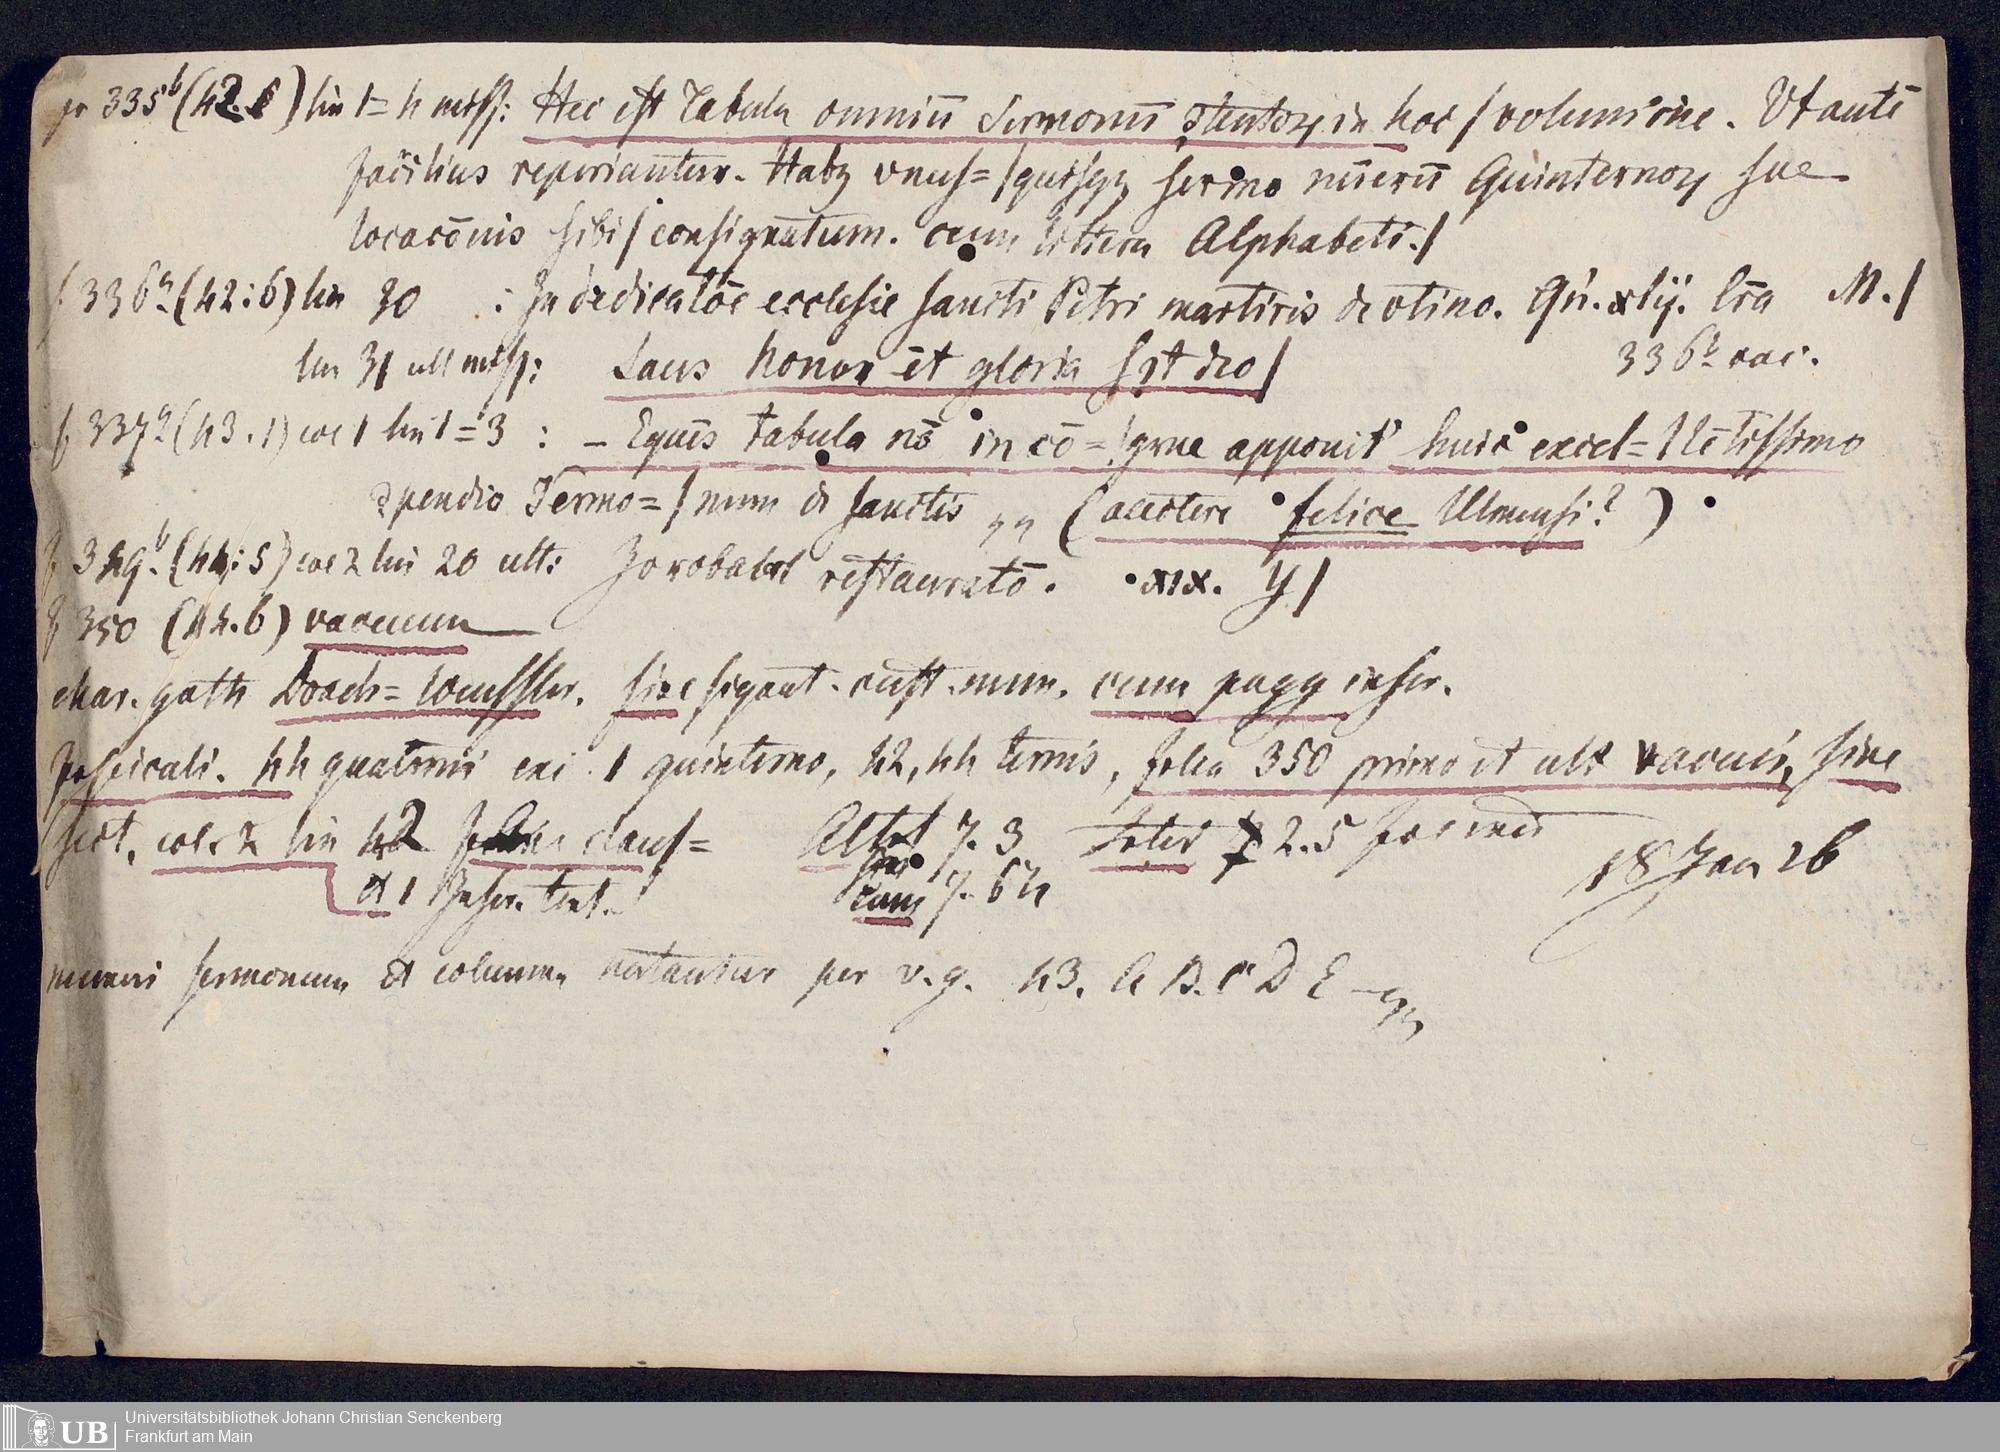 335b (42.5) lin 1=4 miss: Hec est Tabula omniū Sermonū ꝯtentoꝝ in hoc / volumine. Ut autē
facilius reperiantur. Habꝫ vnus= / quisqꝫ sermo nūerū Quinternoꝝ sue
locacōnis sibi / consignatum. cum littera Alphabeti. /
f. 336a (42:6) lin 30 : In dedicatōe ecclesie sancti Petri martiris de vtino. Qn. xlij. lr̄a M. /
lin 31 ult miss: Laus honor et gloria sit deo / 336b vac.
f 337a (43.1) col 1 lin 1=3 : – Equis tabula nō incō= / grue apponit' huic excel= / lētissimo
ꝯpendio Sermo= / num de sanctis „ (auctore felice Ulmensi?)
f 349b. (44:5) col 2 lin 20 ult: Zorobabel restaurato. xix. y /
f 350 (44.6) vacuum
char. goth Drach= . sine signat. cust. num. cum pagg inscr.
Fascicali. 44 quaternis exc. 1 quinterno, 42, 44 ternis, folia 350 primo et ult vacuis, sine
col. 2 lin 42
et 1 Inscr. 18 Jan 26
numeri sermonum et columnae notantur per v.g. 43. A B. C D E
UB
Universitätsbibliothek Johann Christian Senckenberg
Frankfurt am Main